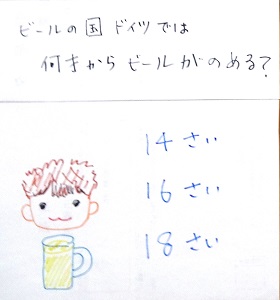 ビールの国 ドイツでは
何才からビールがのめる?
14 さい
16 さい
18 さい